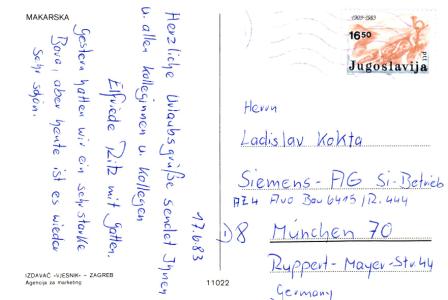 MAKARSKA
Herzliche Urlaubsgrüße sendet Ihnen
u. allen Kolleginnen u. Kollegen
Elfriede Ritz mit Gatten.
Gestern hatten wir ein sehr starke
Bora, aber heute ist es wieder
sehr schön.
17.6.83
IZDAVAČ »VJESNIK« – ZAGREB
Agencija za marketing
11022
1903-1983
16.50
ptt
Jugoslavija
Herrn
Ladislav Kokta
Siemens-AG Si-Betrieb
Bau 6415/R.444
D8 München 70
Ruppert-Mayer-Str. 44
Germany